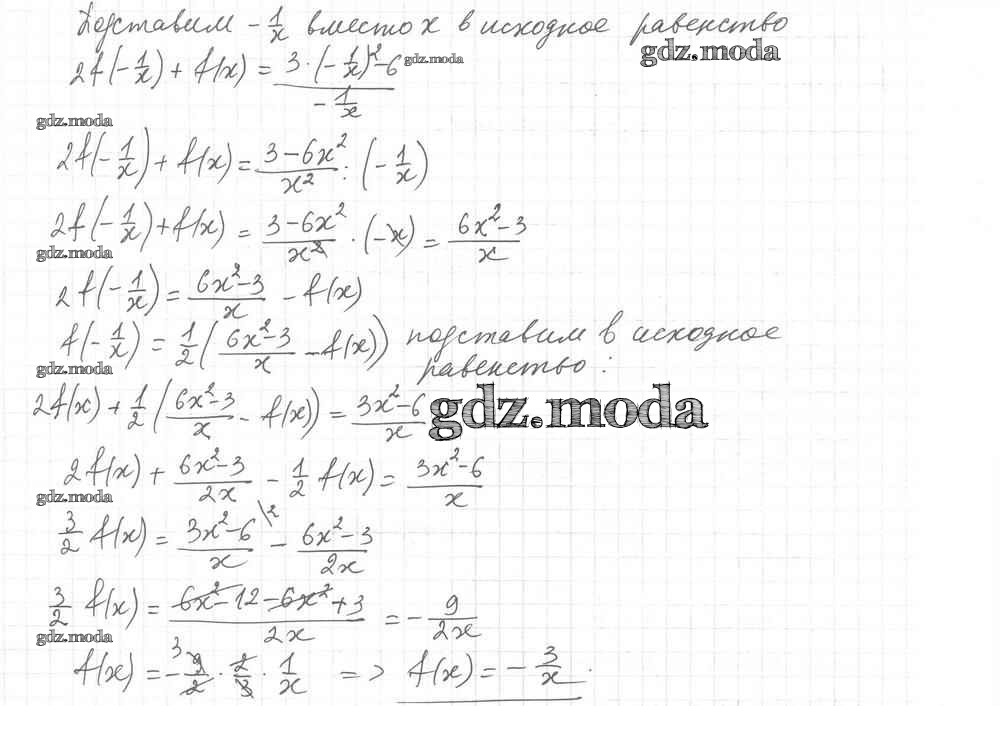 Подставим -1/x вместо x в исходное равенство
gdz.moda
2f(-1/x) + f(x) = (3·(-1/x)²-6)/(-1/x) gdz.moda
gdz.moda
2f(-1/x) + f(x) = (3-6x²)/x² : (-1/x)
2f(-1/x) + f(x) = (3-6x²)/x² · (-x) = (6x²-3)/x
gdz.moda
2f(-1/x) = (6x²-3)/x - f(x)
f(-1/x) = 1/2 ((6x²-3)/x - f(x)) подставим в исходное
gdz.moda равенство:
2f(x) + 1/2 ((6x²-3)/x - f(x)) = (3x²-6)/x gdz.moda
2f(x) + (6x²-3)/2x - 1/2 f(x) = (3x²-6)/x
gdz.moda
3/2 f(x) = (3x²-6)/x \2 - (6x²-3)/2x
3/2 f(x) = (6x²-12-6x²+3)/2x = -9/2x
gdz.moda
f(x) = -9/2 3 · 2/3 · 1/x => f(x) = -3/x.